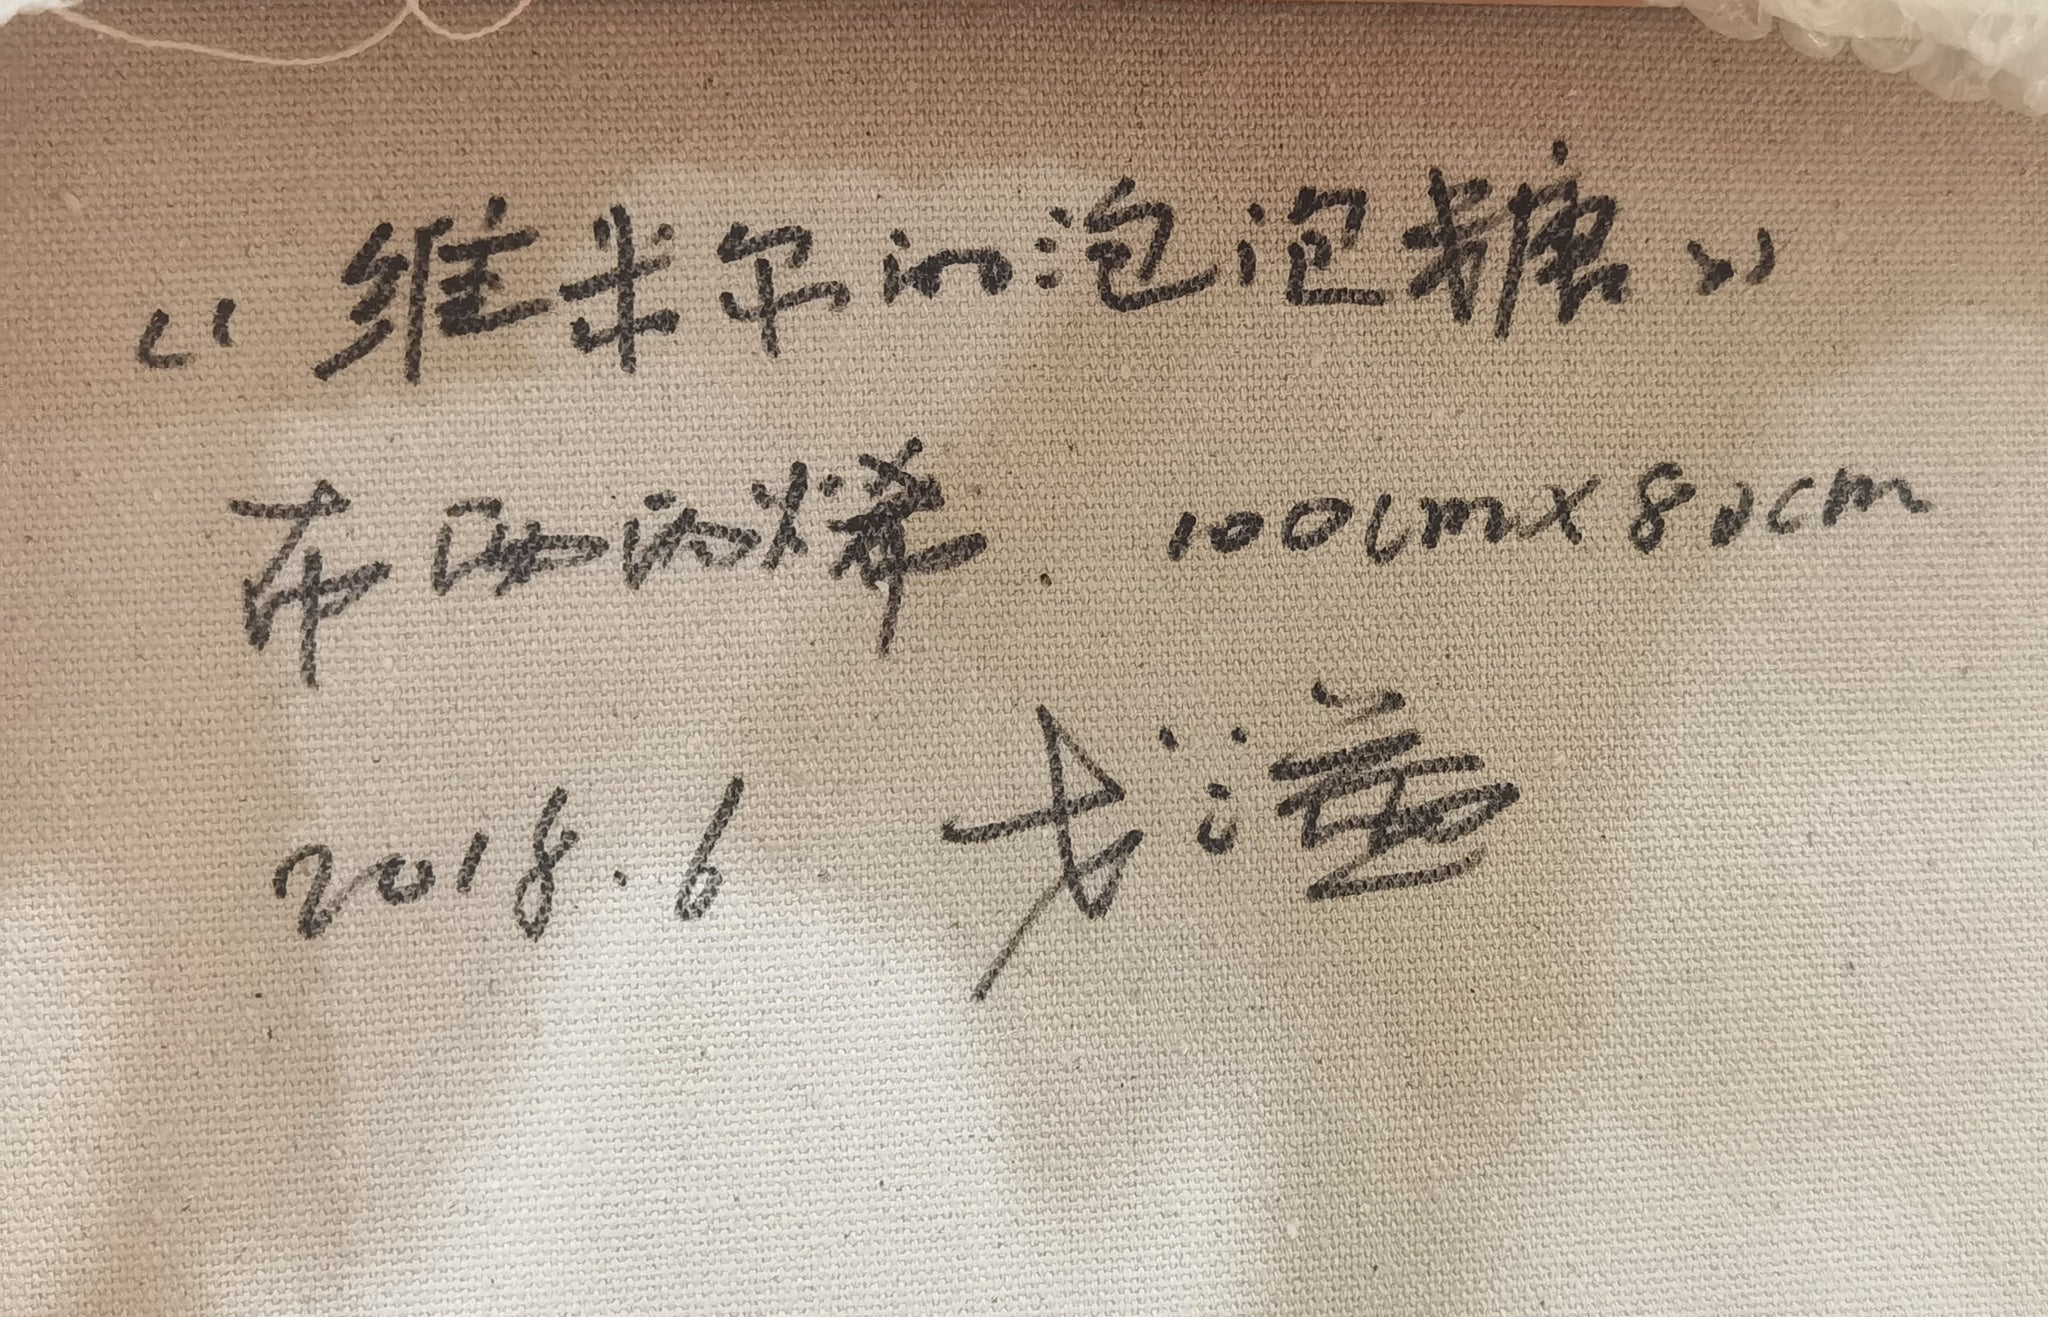 “维米尔的泡泡糖”
布面丙烯 100cm×80cm
2018.6